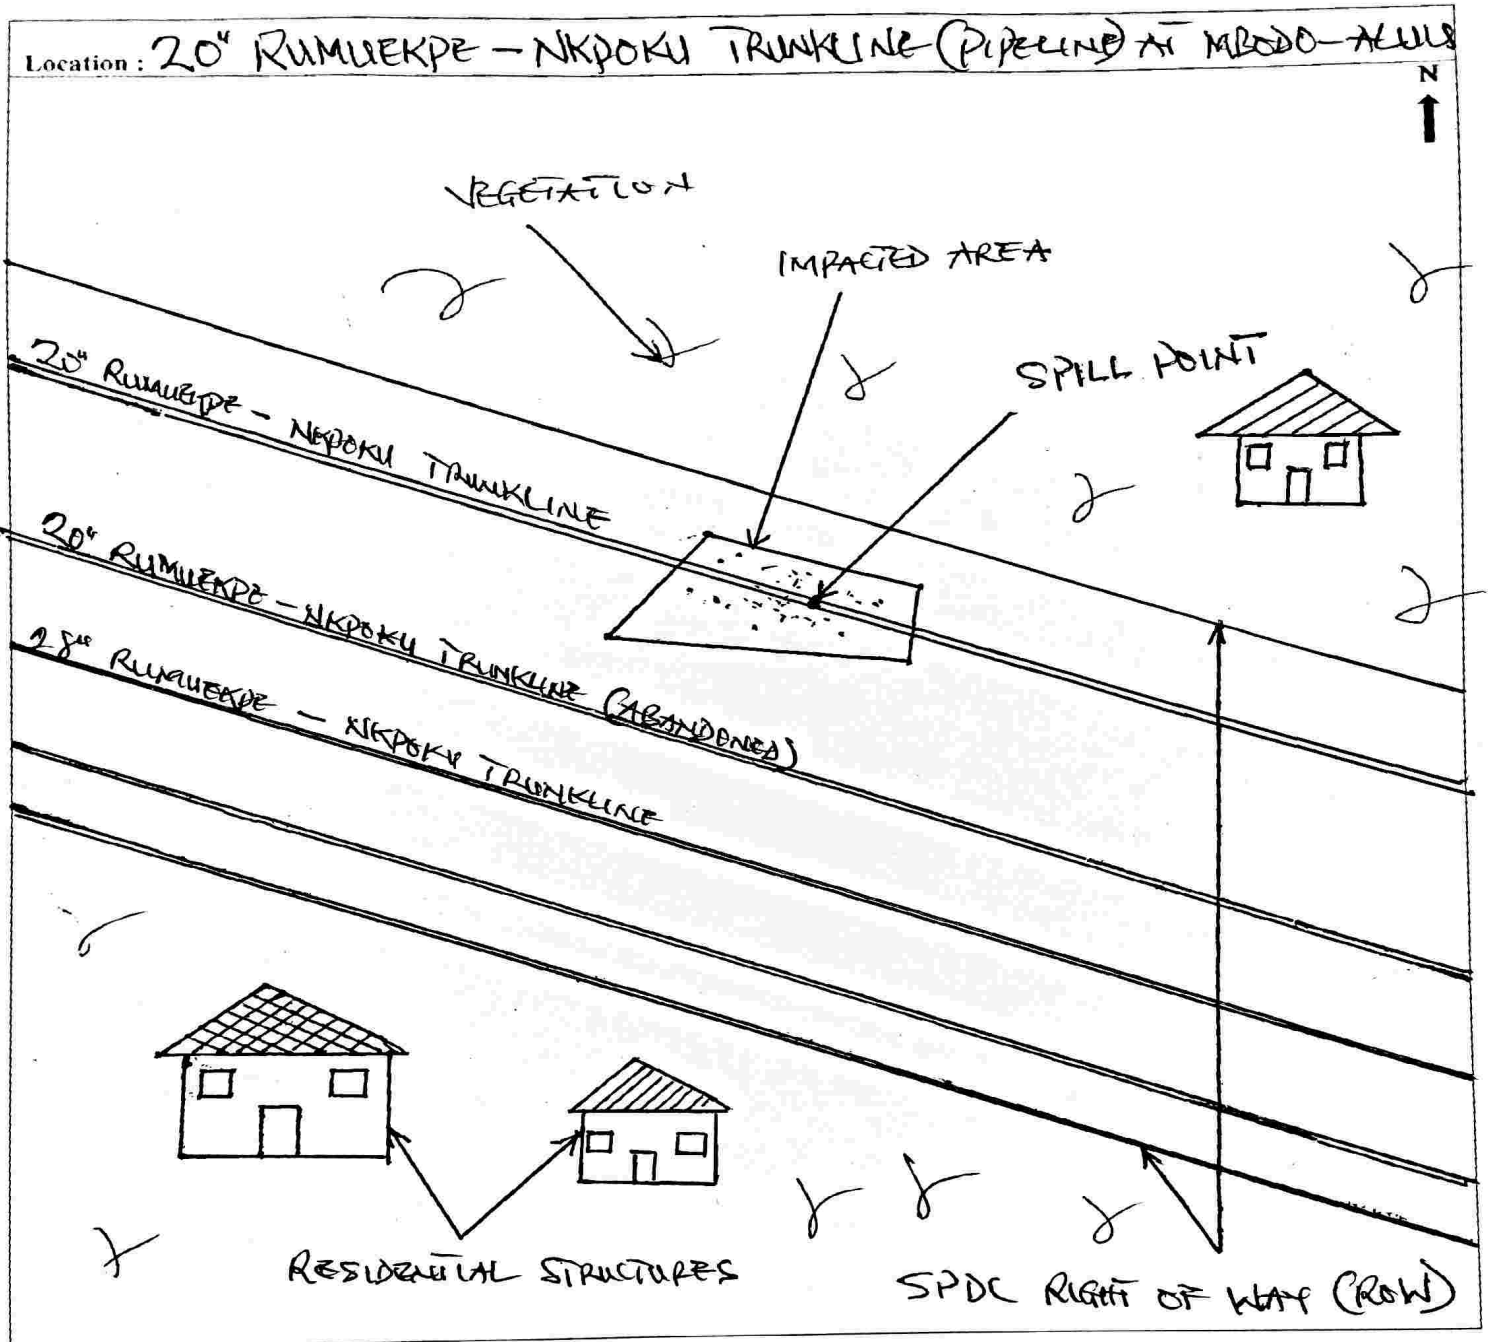 Location : 20" RUMUEKPE - NKPOKU TRUNKLINE (PIPELINE) AT MBODO-ALUU
N
VEGETATION
IMPACTED AREA
SPILL POINT
20" RUMUEKPE - NKPOKU TRUNKLINE
20" RUMUEKPE - NKPOKU TRUNKLINE (ABANDONED)
28" RUMUEKPE - NKPOKU TRUNKLINE
RESIDENTIAL STRUCTURES
SPDC RIGHT OF WAY (ROW)